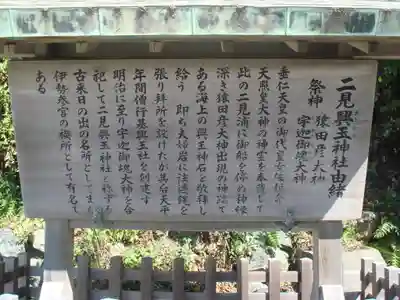 二見興玉神社由緒
祭神 猿田彦大神
宇迦御魂大神
垂仁天皇の御代皇女倭姫命
天照皇大神の神霊を奉戴して
此の二見浦に御船を停め神縁
深き猿田彦大神出現の神跡で
ある海上の興玉神石を敬拝し
給う 即ち夫婦岩に注連縄を
張り拝所を設けたが其后天平
年間僧行基興玉社を創建す
明治に至り宇迦御魂大神を合
祀して二見興玉神社と称す
古来日の出の名所としてまた
伊勢参宮の禊所として有名で
ある